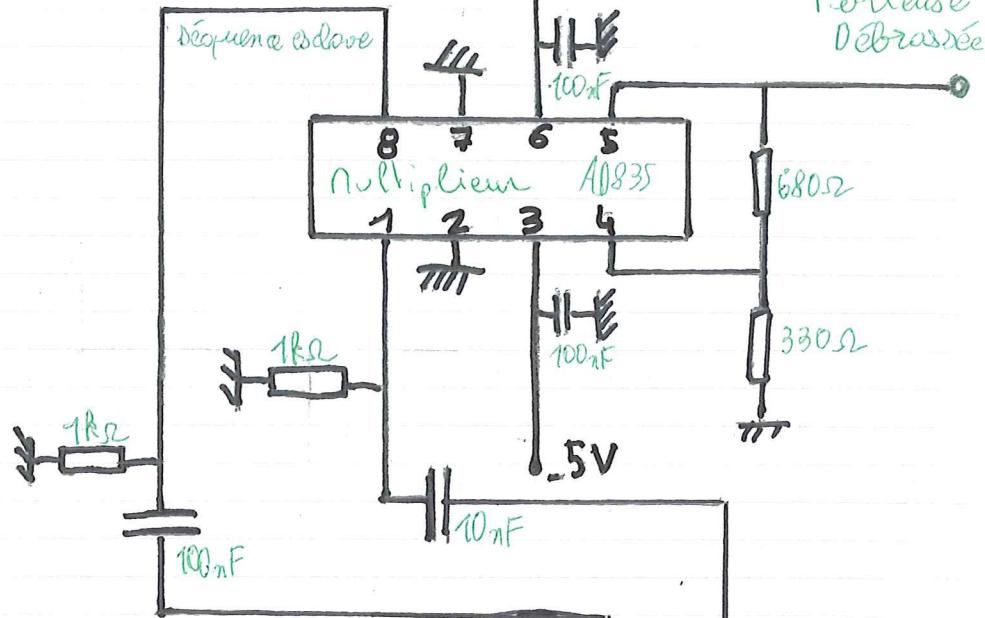 Porteuse
Débrassée
Séquence esclave
100nF
8 7 6 5
Multiplieur AD835
1 2 3 4
680Ω
330Ω
100nF
1kΩ
1kΩ
-5V
10nF
100nF